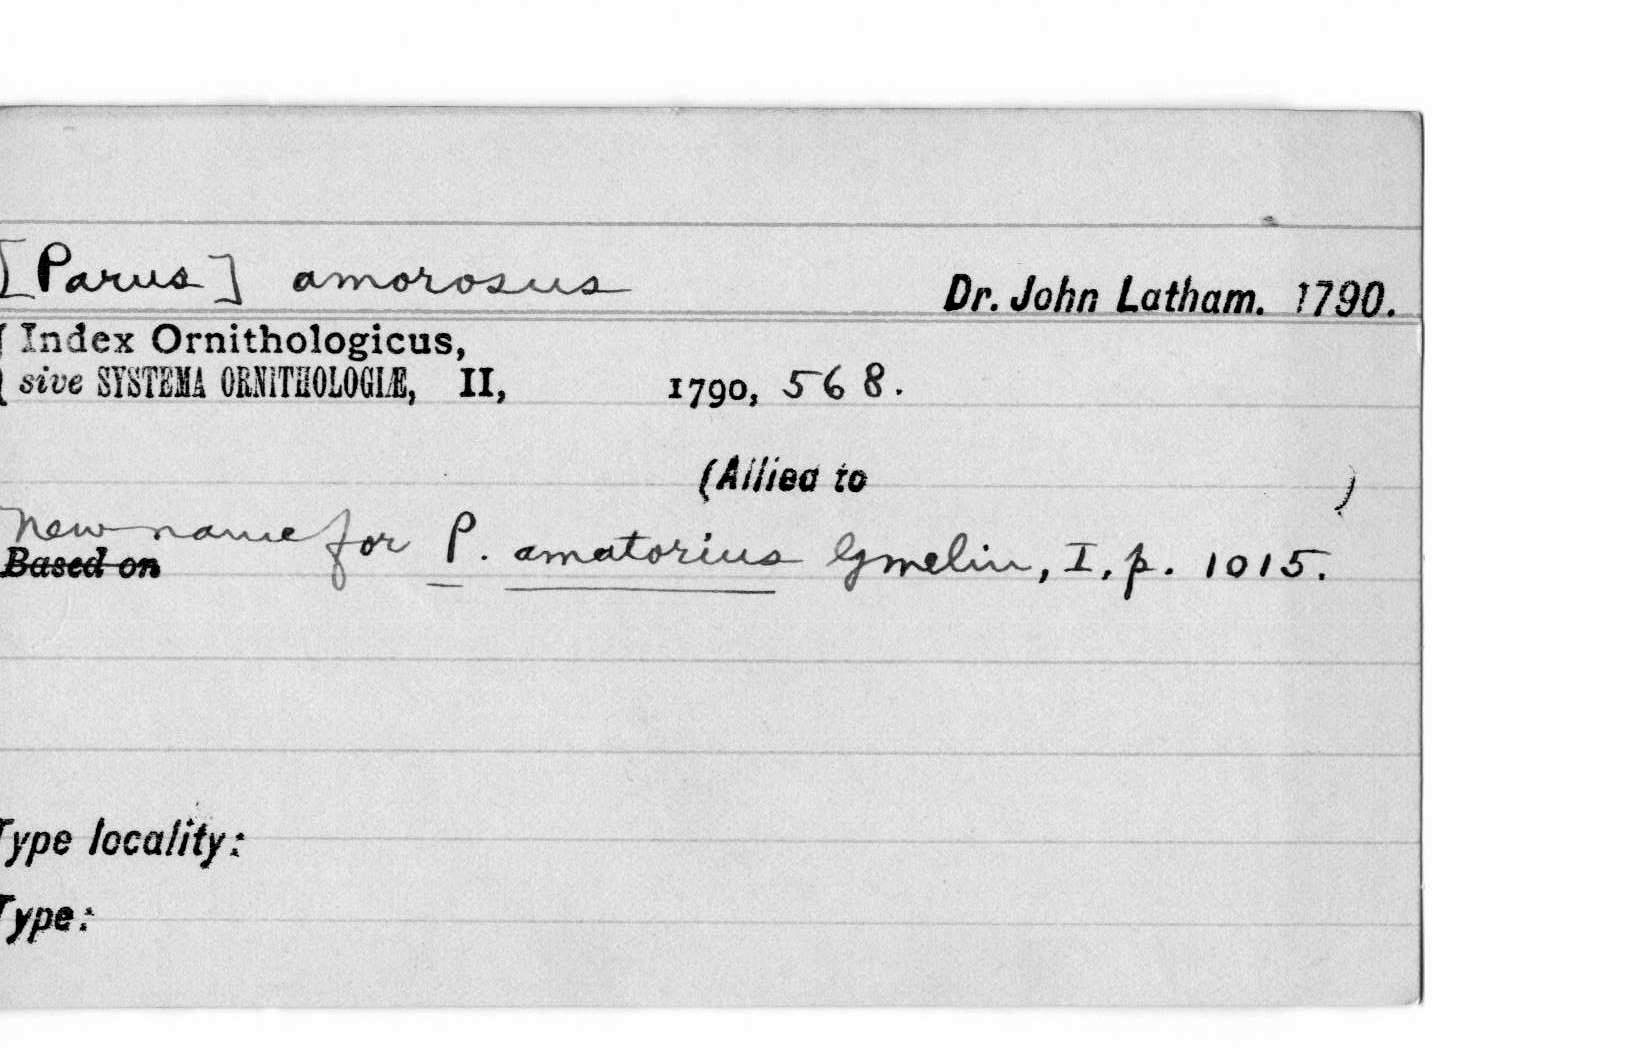 [Parus] amorosus Dr. John Latham. 1790.
Index Ornithologicus,
sive SYSTEMA ORNITHOLOGIÆ, II, 1790, 568.
(Allied to )
New name for P. amatorius Gmelin, I, p. 1015.
Based on
Type locality:
Type: